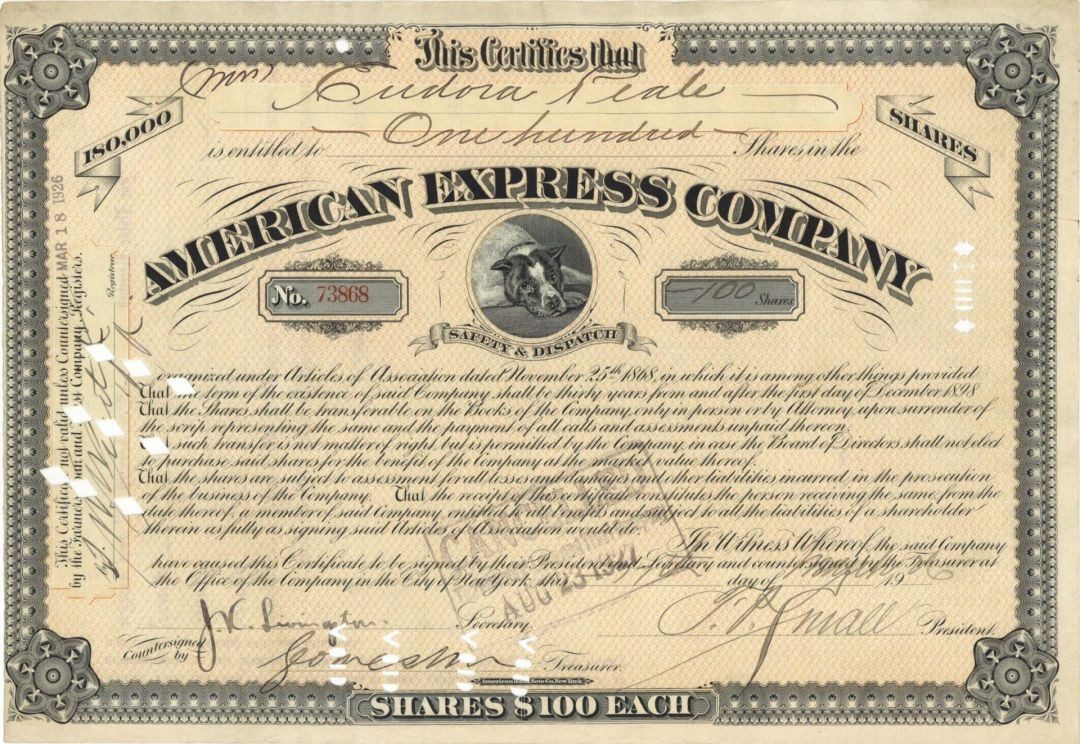 This Certifies that
Mrs Eudora Neale
One hundred
is entitled to Shares in the
180,000
SHARES
AMERICAN EXPRESS COMPANY
No. 73868
100 Shares
SAFETY & DISPATCH
organized under Articles of Association dated November 25th 1868, in which it is among other things provided
That the term of the existence of said Company shall be thirty years from and after the first day of December 1898
That the Shares shall be transferable on the Books of the Company, only in person or by Attorney, upon surrender of
the scrip representing the same and the payment of all calls and assessments unpaid thereon.
That such transfer is not matter of right but is permitted by the Company, in case the Board of Directors shall not elect
to purchase said shares for the benefit of the Company at the market value thereof.
That the shares are subject to assessment for all losses and damages and other liabilities incurred, in the prosecution
of the business of the Company. That the receipt of this certificate constitutes the person receiving the same, from the
date thereof, a member of said Company, entitled to all benefits and subject to all the liabilities of a shareholder
therein as fully as signing said Articles of Association would do.
In Witness Whereof, the said Company
have caused this Certificate to be signed by their President and Secretary and countersigned by the Treasurer at
the Office of the Company in the City of New York, this day of March 19
J.K. Livingston Secretary.
F. P. Small President.
Countersigned
by Treasurer.
American Bank Note Co. New York
SHARES $100 EACH
This Certificate not valid unless Countersigned MAR 18 1926
by the Farmers' Loan and Trust Company, Registrars.
Registrar
100
CANCELLED
AUG 25 1927
VOID
VOID
VOID
VOID